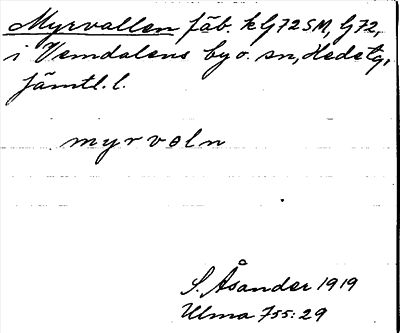 Myrvallen fäb. k G72SM, G72,
i Vemdalens by o. sn, Hedetg,
Jämtl. l.
myrvoln
S. Åsander 1919
Ulma 755:29